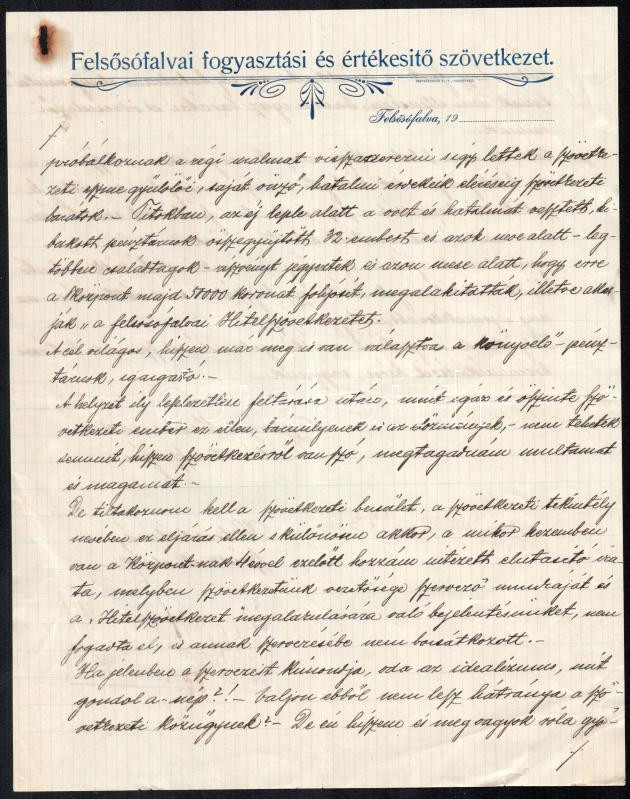 Felsősófalvai fogyasztási és értékesitő szövetkezet.
Felsősófalva, 19
próbálkoznak a régi malmot visszaszerezni s így lettek a szövetke-
zeti eszme gyűlölői, saját önző, hatalmi érdekeik eléréseig szövetkezeti
barátok. – Titokban, az éj leple alatt a ovet és hatalmat vesztett, ki-
bukott pénztárnok összegyűjtött 32 embert és azok neve alatt – leg-
többen családtagok – részvényt jegyeztek és azon mese alatt, hogy erre
a Központ majd 50000 koronát folyósit, megalakították, illetve akar-
ják „a felsősófalvai Hitelszövetkezetet.
A cél világos, hiszen már meg is van választva a könyvelő – pénz-
tárnok, igazgató. –
A helyzet ily leplezetlen feltárása után, mint igaz és őszinte szö-
vetkezeti ember ez ellen, bármilyenek is az előzmények, – nem tehetek
semmit, hiszen szövetkezésről van szó, megtagadnám multamat
és magamat. –
De tiltakoznom kell a szövetkezeti becsület, a szövetkezeti tekintély
nevében ez eljárás ellen s különösen akkor, a mikor kezemben
van a Központ-nak 4 évvel ezelőtt hozzám intézett elutasító ira-
ta, melyben szövetkezetünk vezetősége szervező munkáját és
a „Hitelszövetkezet" megalakulására való bejelentésünket, nem
fogadta el, és annak szervezésébe nem bocsátkozott. –
Ha jelenben a szervezést kimondja, oda az idealizmus, mit
gondol a nép?! – vajjon ebből nem lesz hátránya a szö-
vetkezeti közügynek? – De én hiszem és meg vagyok róla győ-